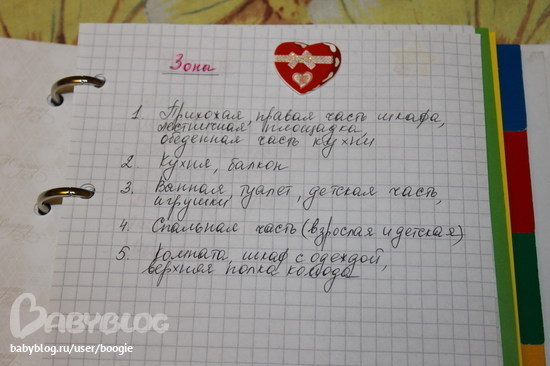 Зоны
1. Прихожая, правая часть шкафа,
лестничная площадка
обеденная часть кухни
2. Кухня, балкон
3. Ванная, туалет, детская часть,
игрушки
4. Спальная часть (взрослая и детская)
5. Комната, шкаф с одеждой,
верхняя полка комода
BABYBLOG
babyblog.ru/user/boogie